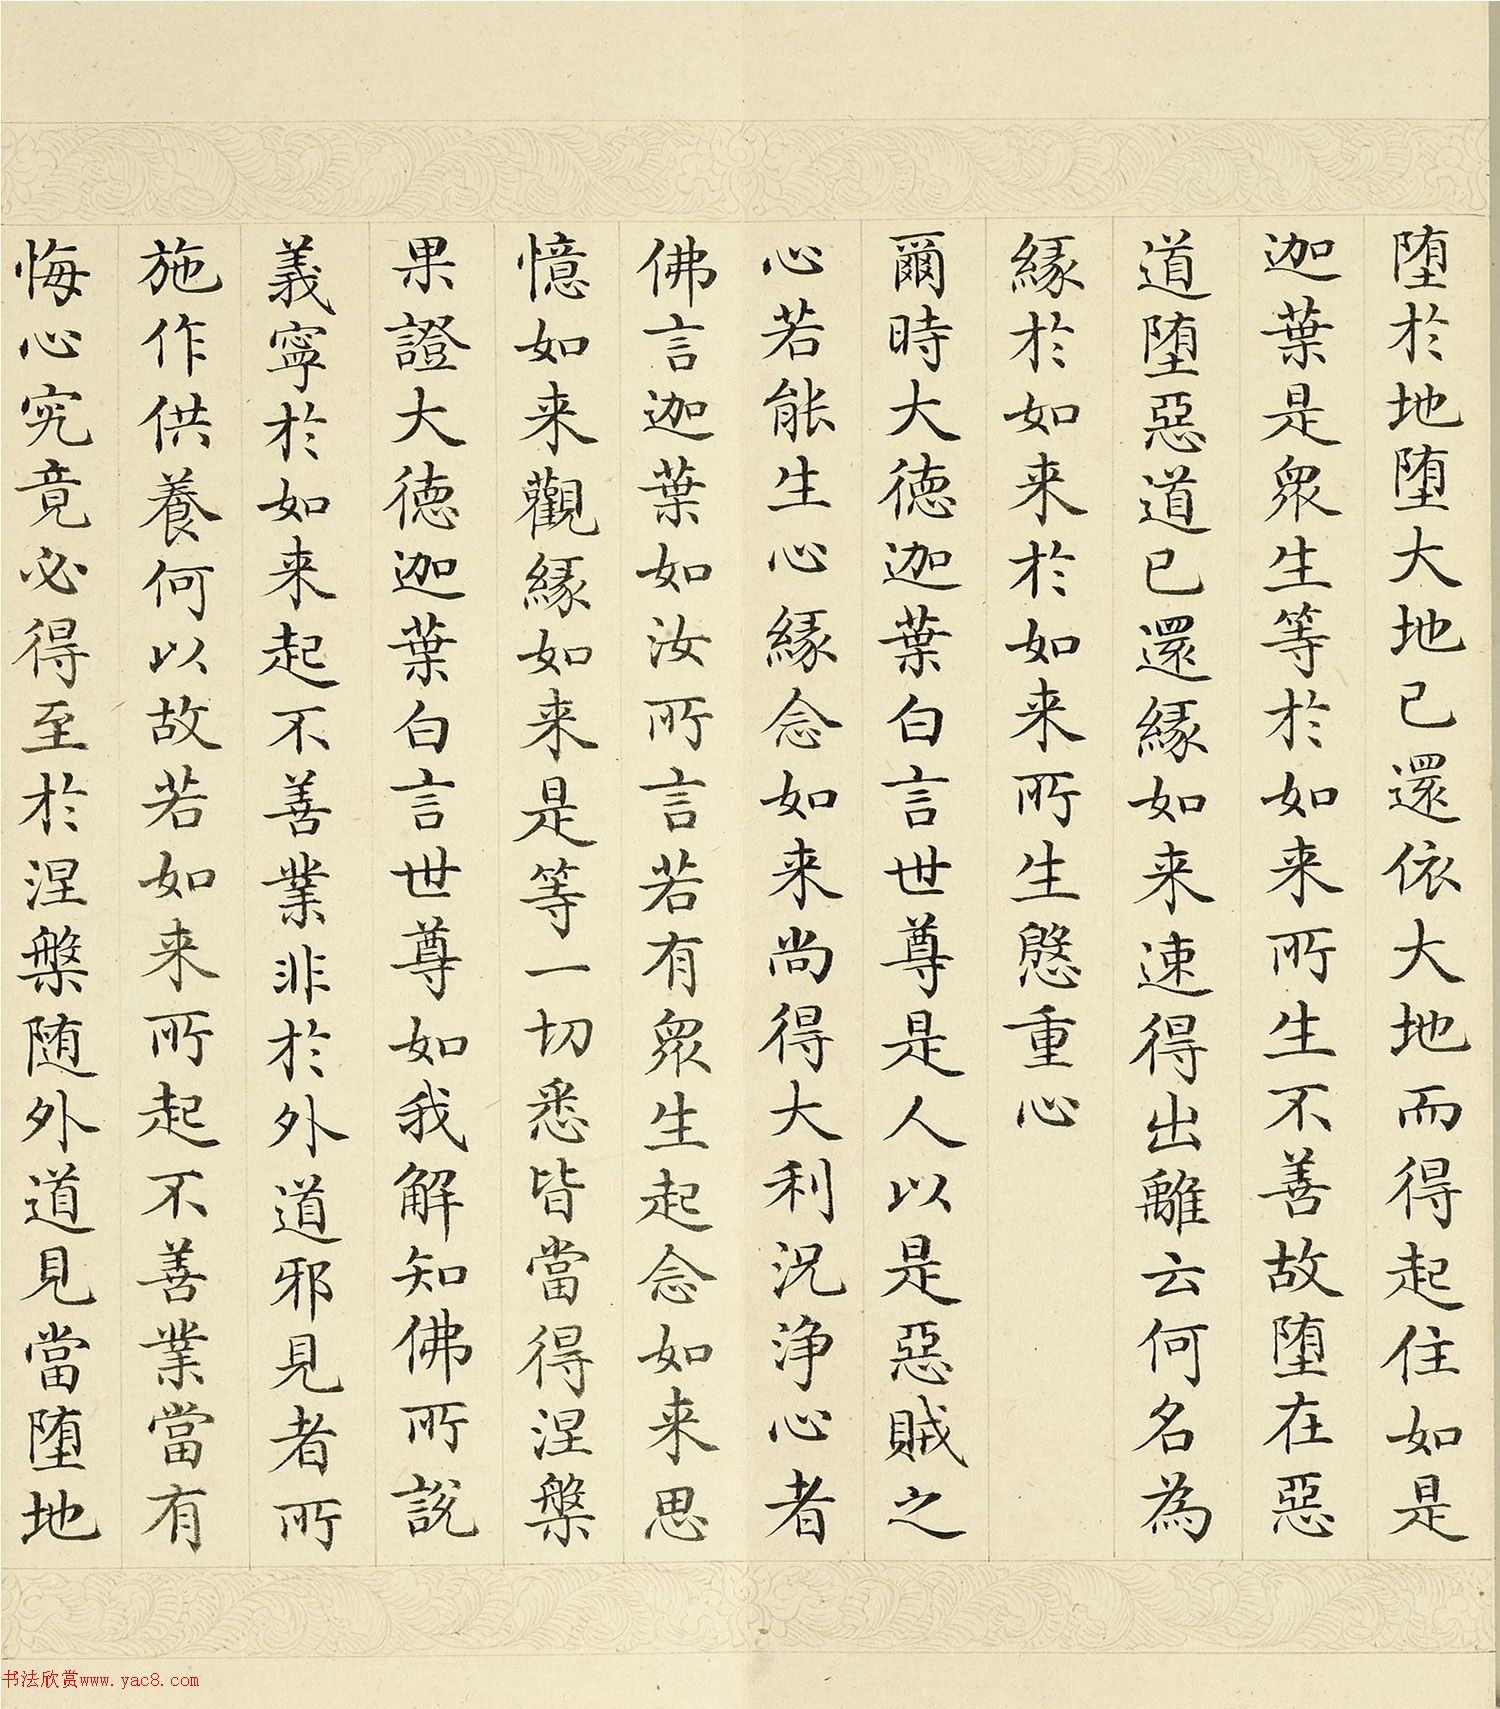 堕於地堕大地已還依大地而得起住如是
迦葉是眾生等於如来所生不善故堕在惡
道堕惡道已還縁如来速得出離云何名為
縁於如来於如来所生慇重心
爾時大徳迦葉白言世尊是人以是惡賊之
心若能生心縁念如来尚得大利況浄心者
佛言迦葉如汝所言若有眾生起念如来思
憶如来觀縁如来是等一切悉皆當得涅槃
果證大徳迦葉白言世尊如我解知佛所說
義寧於如来起不善業非於外道邪見者所
施作供養何以故若如来所起不善業當有
悔心究竟必得至於涅槃随外道見當堕地
书法欣赏www.yac8.com